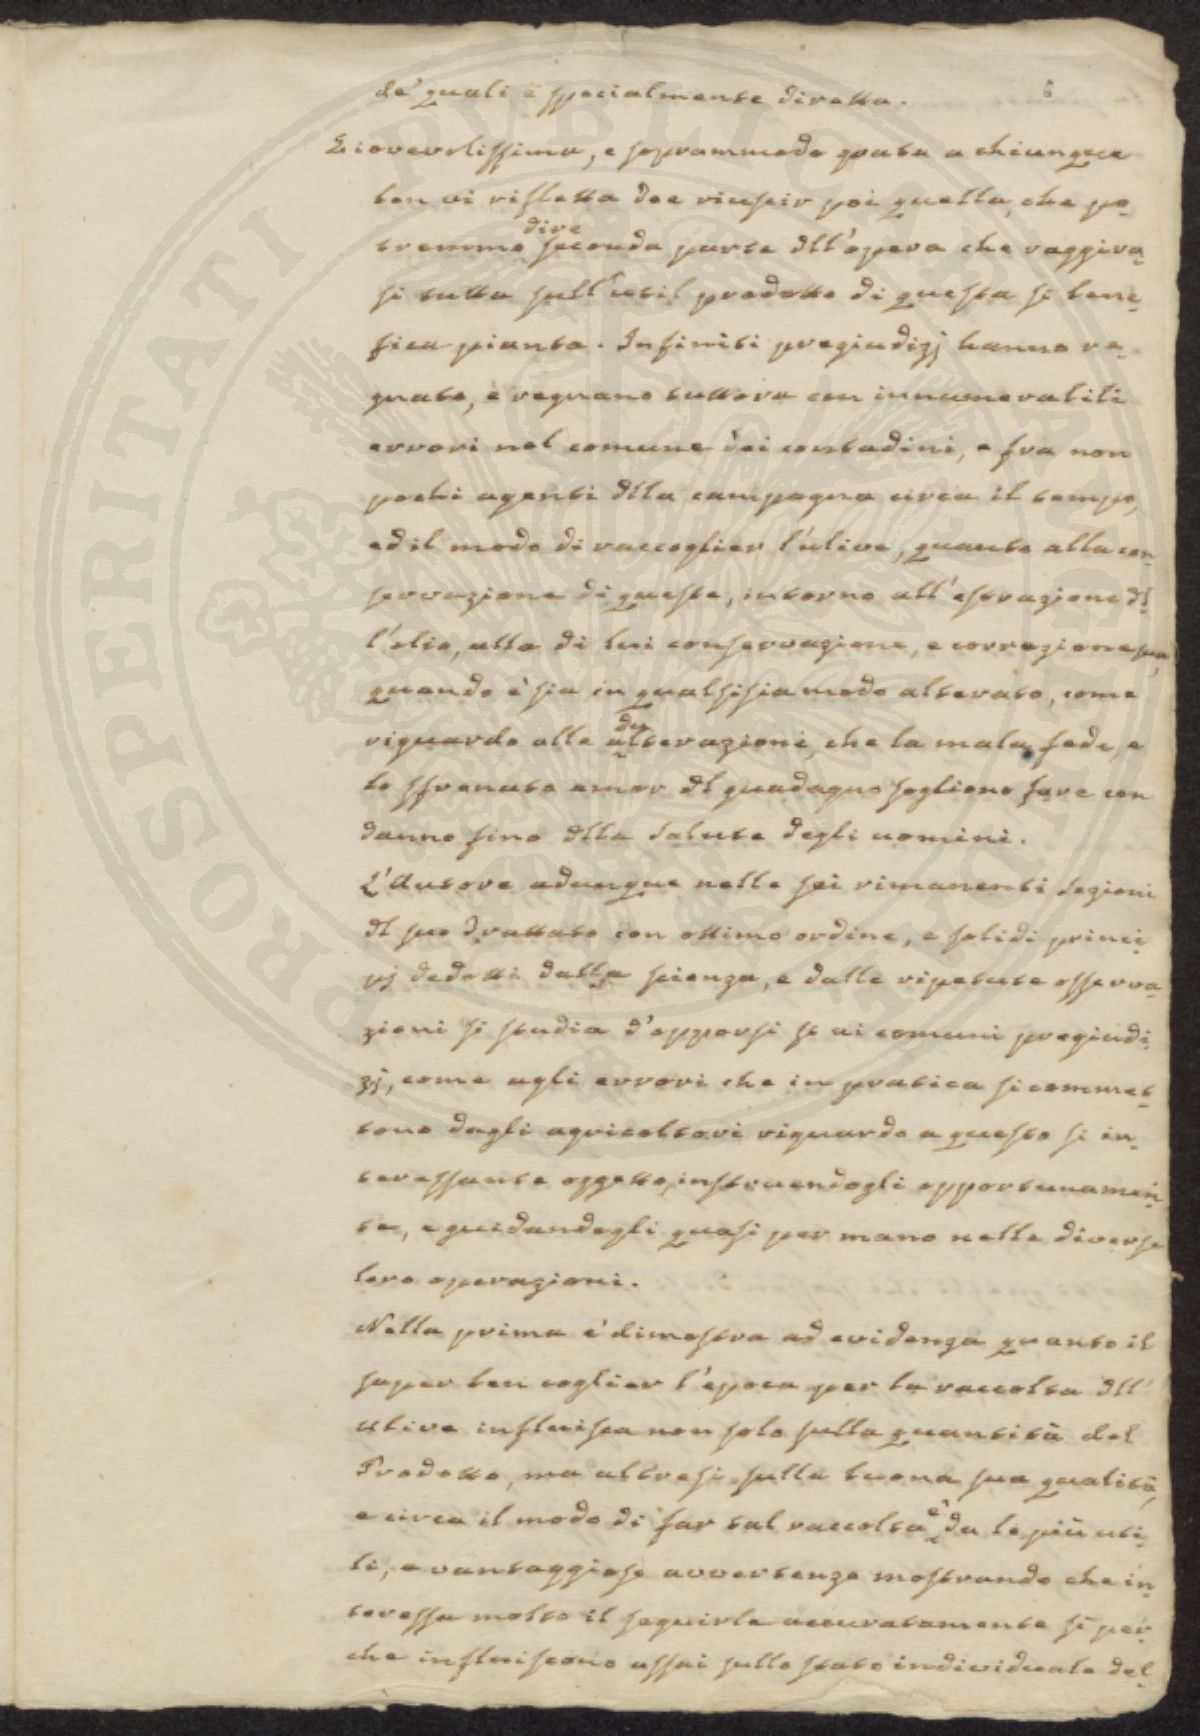 de' quali è specialmente diretta.
Giovevolissima, e soprammodo grata a chiunque
ben vi rifletta dee riuscir poi quella, che po-
tremmo dire seconda parte dell'opera che raggira-
si tutta sull'util prodotto di questa sì bene-
fica pianta. Infiniti pregiudizj hanno re-
gnato, e regnano tuttora con innumerabili
errori nel comune dei contadini, e fra non
pochi agenti dlla campagna circa il tempo,
ed il modo di raccoglier l'ulive, quanto alla con-
servazione di queste, intorno all'estrazione dl-
l'olio, alla di lui conservazione, e correzione sua,
quando è sia in qualsisia modo alterato, come
riguardo alle adulterazioni, che la mala fede, e
lo sfrenato amor dl guadagno sogliono fare con
danno fino dlla salute degli uomini.
L'Autore adunque nelle sei rimanenti Sezioni
dl suo Trattato con ottimo ordine, e solidi princi-
pj dedotti dalla scienza, e dalle ripetute osserva-
zioni si studia d'opporsi sì ai comuni pregiudi-
zj, come agli errori che in pratica si commet-
tono dagli agricoltori riguardo a questo sì in-
teressante oggetto, instruendogli opportunamen-
te, e guidandogli quasi per mano nelle diverse
loro operazioni.
Nella prima è dimostra ad evidenza quanto il
saper ben coglier l'epoca per la raccolta dll'
Ulive influisca non solo sulla quantità del
Prodotto, ma altresì sulla buona sua qualità,
e circa il modo di far tal raccolta e' dà le più uti-
li, e vantaggiose avvertenze mostrando che in-
teressa molto il seguirle accuratamente sì per-
che influiscono assai sullo stato individuale del-
PROSPERITATI PUBLICAE